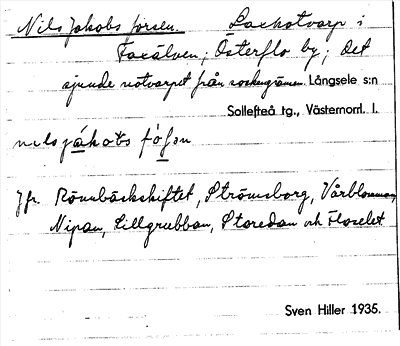 Nils Jakobs forsen. Laxnotvarp i
Faxälven; Österflo by; det
sjunde notvarpet från sockengränsen. Långsele s:n
Sollefteå tg., Västernorrl. l.
nilsjákobs fó̱ṣn
Jfr. Rönnbäckskiftet, Strömsborg, Vårblomman,
Nipan, Lillgrubban, Storedan och Floselet
Sven Hiller 1935.